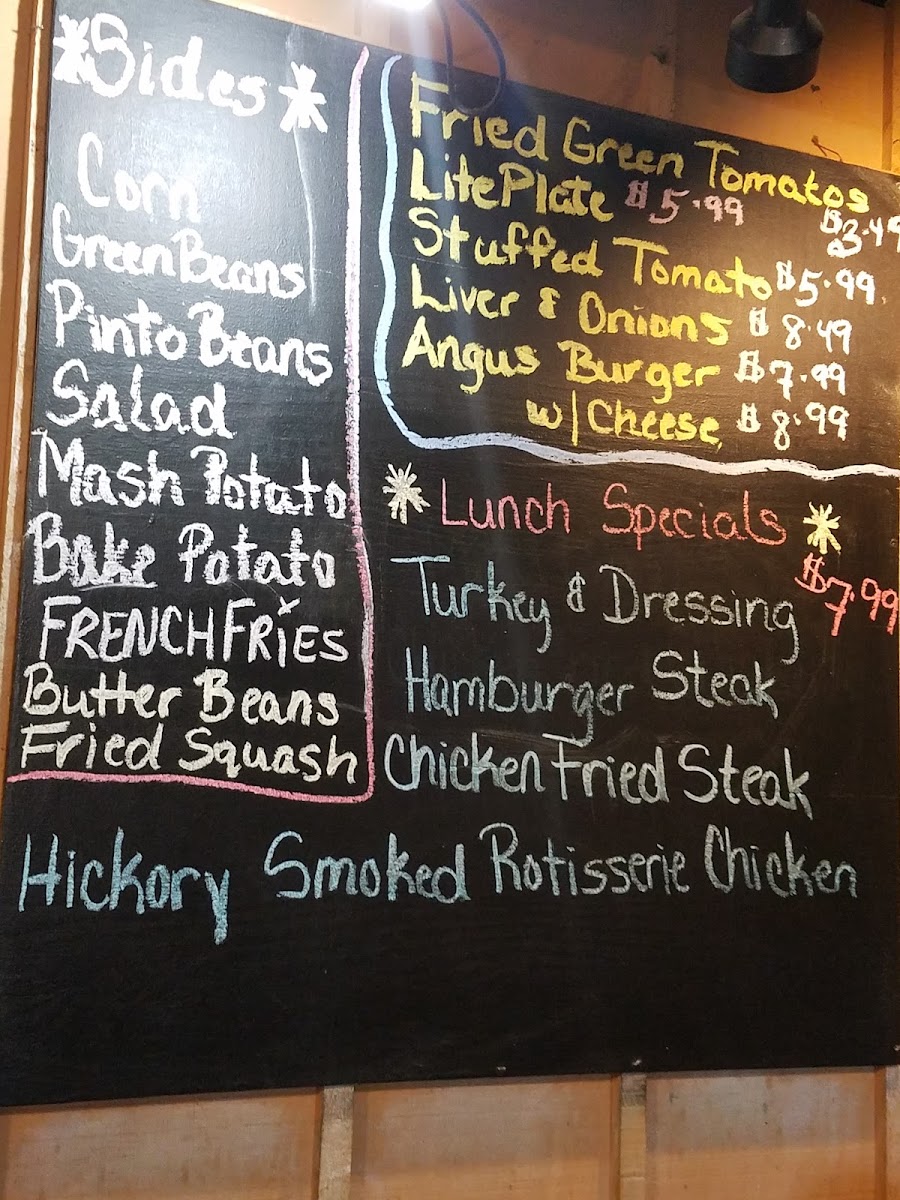 *Sides*
Corn
Green Beans
Pinto Beans
Salad
Mash Potato
Bake Potato
FRENCH FRiES
Butter Beans
Fried Squash
Fried Green Tomatos
$3.49
Lite Plate $5.99
Stuffed Tomato $5.99
Liver & Onions $8.49
Angus Burger $7.99
w/Cheese $8.99
* Lunch Specials *
$7.99
Turkey & Dressing
Hamburger Steak
Chicken Fried Steak
Hickory Smoked Rotisserie Chicken